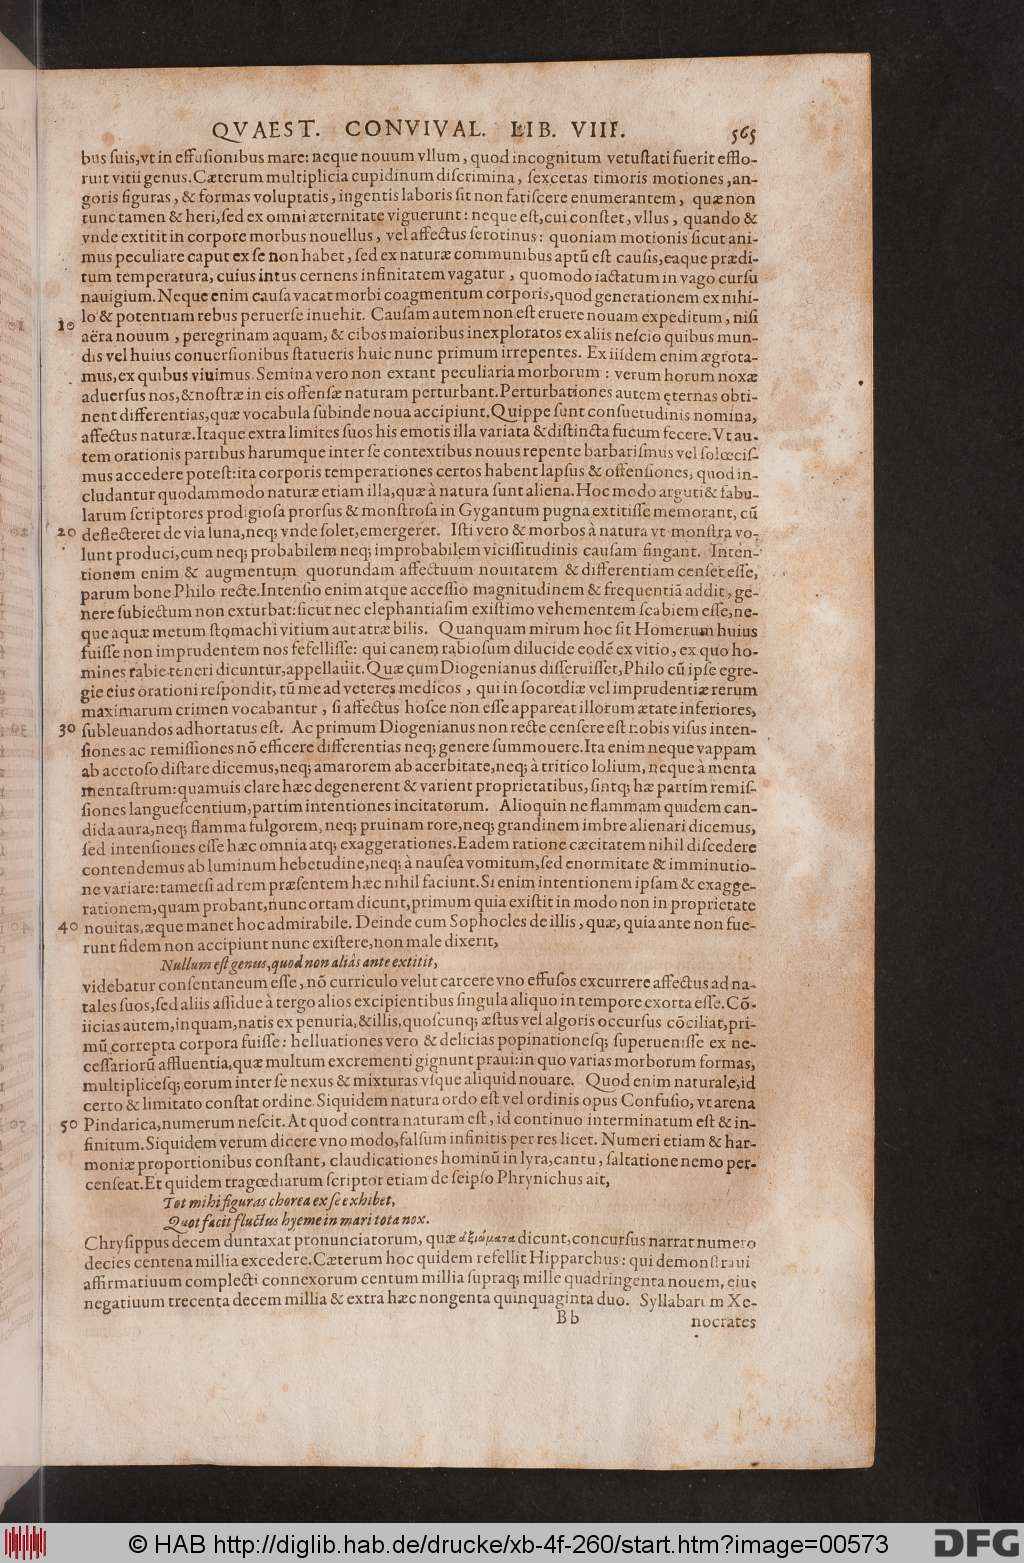 QVAEST. CONVIVAL. LIB. VIII. 565
bus suis, vt in effusionibus mare: neque nouum vllum, quod incognitum vetustati fuerit efflo-
ruit vitii genus. Cæterum multiplicia cupidinum discrimina, sexcetas timoris motiones, an-
goris figuras, & formas voluptatis, ingentis laboris sit non fatiscere enumerantem, quæ non
tunc tamen & heri, sed ex omni æternitate viguerunt: neque est, cui constet, vllus, quando &
vnde extitit in corpore morbus nouellus, vel affectus serotinus: quoniam motionis sicut ani-
mus peculiare caput ex se non habet, sed ex naturæ communibus aptũ est causis, eaque prædi-
tum temperatura, cuius intus cernens infinitatem vagatur, quomodo iactatum in vago cursu
nauigium. Neque enim causa vacat morbi coagmentum corporis, quod generationem ex nihi-
lo & potentiam rebus peruerse inuehit. Causam autem non est eruere nouam expeditum, nisi
10 aëra nouum, peregrinam aquam, & cibos maioribus inexploratos ex aliis nescio quibus mun-
dis vel huius conuersionibus statueris huic nunc primum irrepentes. Ex iisdem enim ægrota-
mus, ex quibus viuimus. Semina vero non extant peculiaria morborum: verum horum noxæ
aduersus nos, & nostræ in eis offensæ naturam perturbant. Perturbationes autem ęternas obti-
nent differentias, quæ vocabula subinde noua accipiunt. Quippe sunt consuetudinis nomina,
affectus naturæ. Itaque extra limites suos his emotis illa variata & distincta fucum fecere. Vt au-
tem orationis partibus harumque inter se contextibus nouus repente barbarismus vel solœcis-
mus accedere potest: ita corporis temperationes certos habent lapsus & offensiones, quod in-
cludantur quodammodo naturæ etiam illa, quæ à natura sunt aliena. Hoc modo arguti & fabu-
larum scriptores prodigiosa prorsus & monstrosa in Gygantum pugna extitisse memorant, cũ
20 deflecteret de via luna, neq; vnde solet, emergeret. Isti vero & morbos à natura vt monstra vo-
lunt produci, cum neq; probabilem neq; improbabilem vicissitudinis causam fingant. Inten-
tionem enim & augmentum quorundam affectuum nouitatem & differentiam censet esse,
parum bone Philo recte. Intensio enim atque accessio magnitudinem & frequentiã addit, ge-
nere subiectum non exturbat: sicut nec elephantiasim existimo vehementem scabiem esse, ne-
que aquæ metum stomachi vitium aut atræ bilis. Quanquam mirum hoc sit Homerum huius
fuisse non imprudentem nos fefellisse: qui canem rabiosum dilucide eodẽ ex vitio, ex quo ho-
mines rabie teneri dicuntur, appellauit. Quæ cum Diogenianus disseruisset, Philo cũ ipse egre-
gie eius orationi respondit, tũ me ad veteres medicos, qui in socordiæ vel imprudentiæ rerum
maximarum crimen vocabantur, si affectus hosce non esse appareat illorum ætate inferiores,
30 subleuandos adhortatus est. Ac primum Diogenianus non recte censere est nobis visus inten-
siones ac remissiones nõ efficere differentias neq; genere summouere. Ita enim neque vappam
ab acetoso distare dicemus, neq; amarorem ab acerbitate, neq; à tritico lolium, neque à menta
mentastrum: quamuis clare hæc degenerent & varient proprietatibus, sintq; hæ partim remis-
siones languescentium, partim intentiones incitatorum. Alioquin ne flammam quidem can-
dida aura, neq; flamma fulgorem, neq; pruinam rore, neq; grandinem imbre alienari dicemus,
sed intensiones esse hæc omnia atq; exaggerationes. Eadem ratione cæcitatem nihil discedere
contendemus ab luminum hebetudine, neq; à nausea vomitum, sed enormitate & imminutio-
ne variare: tametsi ad rem præsentem hæc nihil faciunt. Si enim intentionem ipsam & exagge-
rationem, quam probant, nunc ortam dicunt, primum quia existit in modo non in proprietate
40 nouitas, æque manet hoc admirabile. Deinde cum Sophocles de illis, quæ, quia ante non fue-
runt fidem non accipiunt nunc existere, non male dixerit,
Nullum est genus, quod non aliàs ante extitit,
videbatur consentaneum esse, nõ curriculo velut carcere vno effusos excurrere affectus ad na-
tales suos, sed aliis assidue à tergo alios excipientibus singula aliquo in tempore exorta esse. Cõ-
iicias autem, inquam, natis ex penuria, & illis, quoscunq; æstus vel algoris occursus cõciliat, pri-
mũ correpta corpora fuisse: helluationes vero & delicias popinationesq; superuenisse ex ne-
cessariorũ affluentia, quæ multum excrementi gignunt praui: in quo varias morborum formas,
multiplicesq; eorum inter se nexus & mixturas vsque aliquid nouare. Quod enim naturale, id
certo & limitato constat ordine. Siquidem natura ordo est vel ordinis opus Confusio, vt arena
50 Pindarica, numerum nescit. At quod contra naturam est, id continuo interminatum est & in-
finitum. Siquidem verum dicere vno modo, falsum infinitis per res licet. Numeri etiam & har-
moniæ proportionibus constant, claudicationes hominũ in lyra, cantu, saltatione nemo per-
censeat. Et quidem tragœdiarum scriptor etiam de seipso Phrynichus ait,
Tot mihi figuras chorea ex se exhibet,
Quot facit fluctus hyeme in mari tota nox.
Chrysippus decem duntaxat pronunciatorum, quæ ἀξιώματα dicunt, concursus narrat numero
decies centena millia excedere. Cæterum hoc quidem refellit Hipparchus: qui demonstraui
affirmatiuum complecti connexorum centum millia supraq; mille quadringenta nouem, eius
negatiuum trecenta decem millia & extra hæc nongenta quinquaginta duo. Syllabarum Xe-
Bb nocrates
© HAB http://diglib.hab.de/drucke/xb-4f-260/start.htm?image=00573 DFG